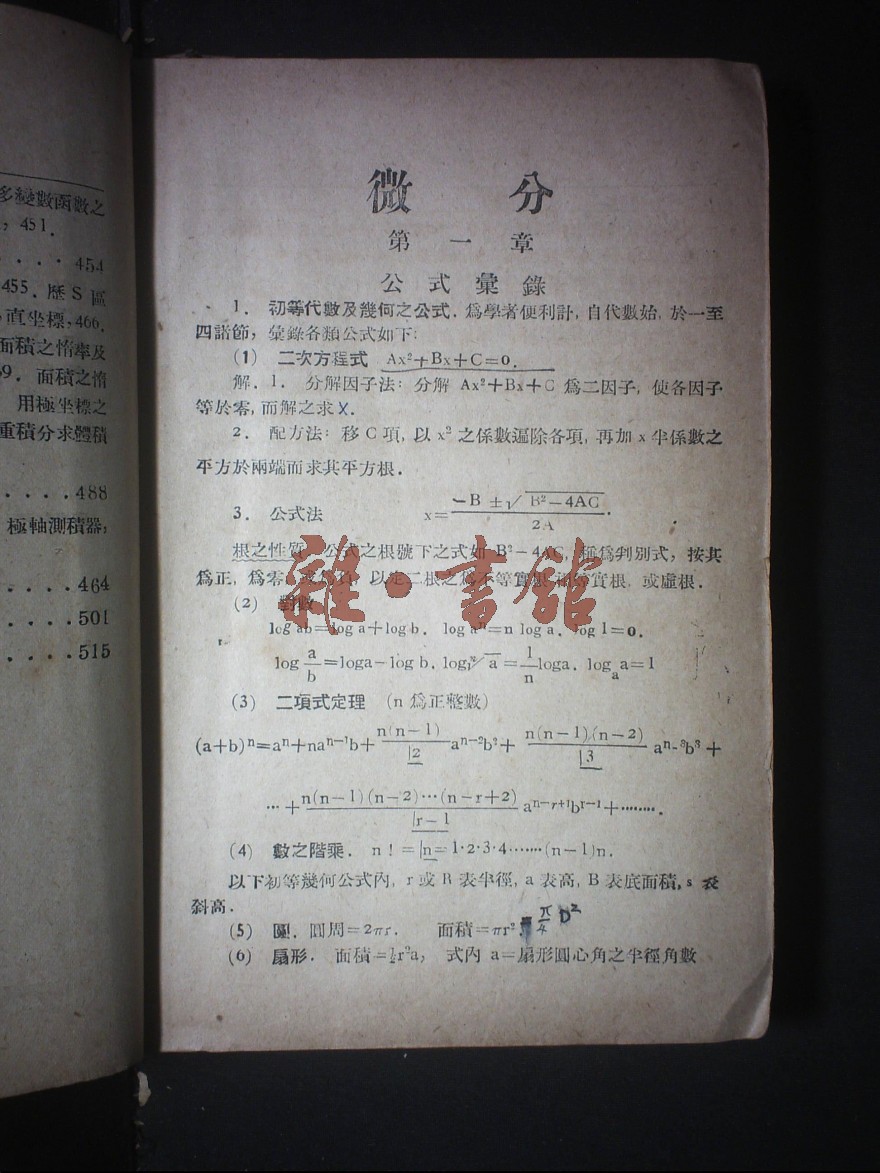 多變數函數之
451.
. . . . 454
455. 歷 S 區
直坐標, 466.
面積之惰率及
9. 面積之惰
用極坐標之
重積分求體積
. . . . 488
極軸測積器,
. . . . 464
. . . . 501
. . . . 515
微 分
第 一 章
公 式 彙 錄
1. 初等代數及幾何之公式. 爲學者便利計, 自代數始, 於一至
四諸節, 彙錄各類公式如下:
(1) 二次方程式 Ax²+Bx+C=0.
解. 1. 分解因子法: 分解 Ax²+Bx+C 爲二因子, 使各因子
等於零, 而解之求 X.
2. 配方法: 移 C 項, 以 x² 之係數遍除各項, 再加 x 半係數之
平方於兩端而求其平方根.
3. 公式法 x=(-B ± √(B²-4AC))/2A.
根之性質 公式之根號下之式如 B²-4AC, 稱爲判別式, 按其
爲正, 爲零 或爲負, 以定二根之爲不等實根 相等實根, 或虛根.
(2) 對數
log ab=log a+log b. log aⁿ=n log a. log 1=0.
log a/b=loga-log b. log ⁿ√a = 1/n loga. logₐ a=1
(3) 二項式定理 (n 爲正整數)
(a+b)ⁿ=aⁿ+naⁿ⁻¹b+ n(n-1)/|2 aⁿ⁻²b²+ n(n-1)(n-2)/|3 aⁿ⁻³b³+
…+ n(n-1)(n-2)…(n-r+2)/|r-1 aⁿ⁻ʳ⁺¹bʳ⁻¹+…….
(4) 數之階乘. n!=|n=1·2·3·4……(n-1)n.
以下初等幾何公式內, r 或 R 表半徑, a 表高, B 表底面積, s 表
斜高.
(5) 圓. 圓周=2πr. 面積=πr². = π/4 D²
(6) 扇形. 面積=½r²a, 式內 a=扇形圓心角之半徑角數
雜·書館